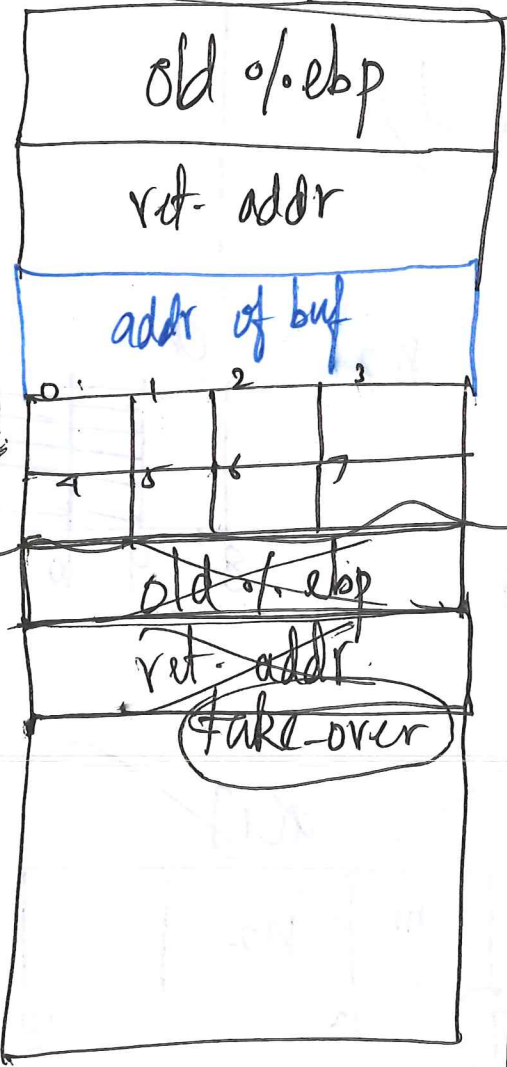 old %ebp
ret. addr
addr of buf
0 1 2 3
4 5 6 7
old % ebp
ret. addr.
take-over